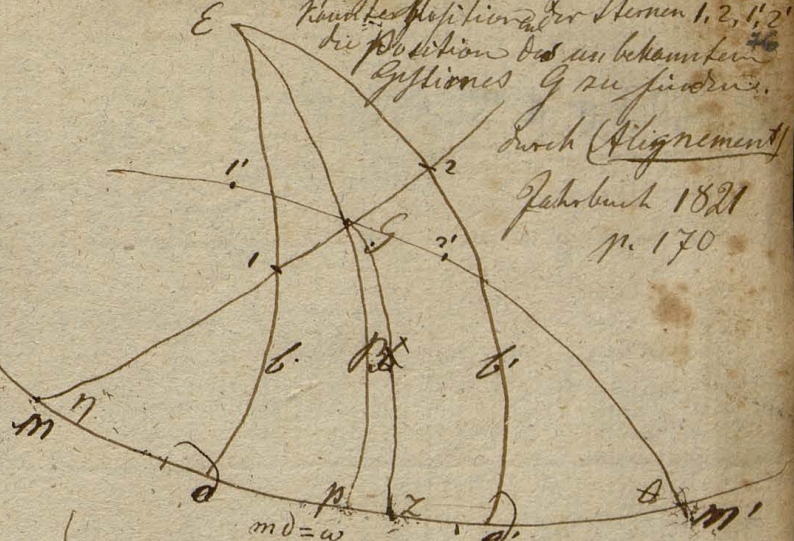 E
Position der Sternen 1, 2, 1', 2'
die Position des unbekannten
Gestirnes G zu finden.
durch (Alignement)
Jahrbuch 1821
p. 170
1'
2
G
2'
1
b
B
b'
m
η
d
p
z
d'
m'
md = ω